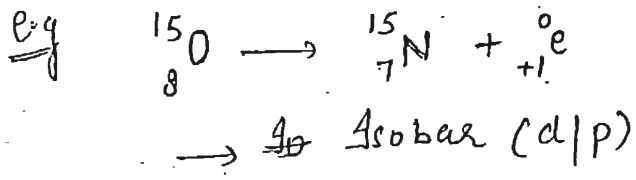 e.g ¹⁵₈O → ¹⁵₇N + ⁰₊₁e
→ Isobar (d/p)